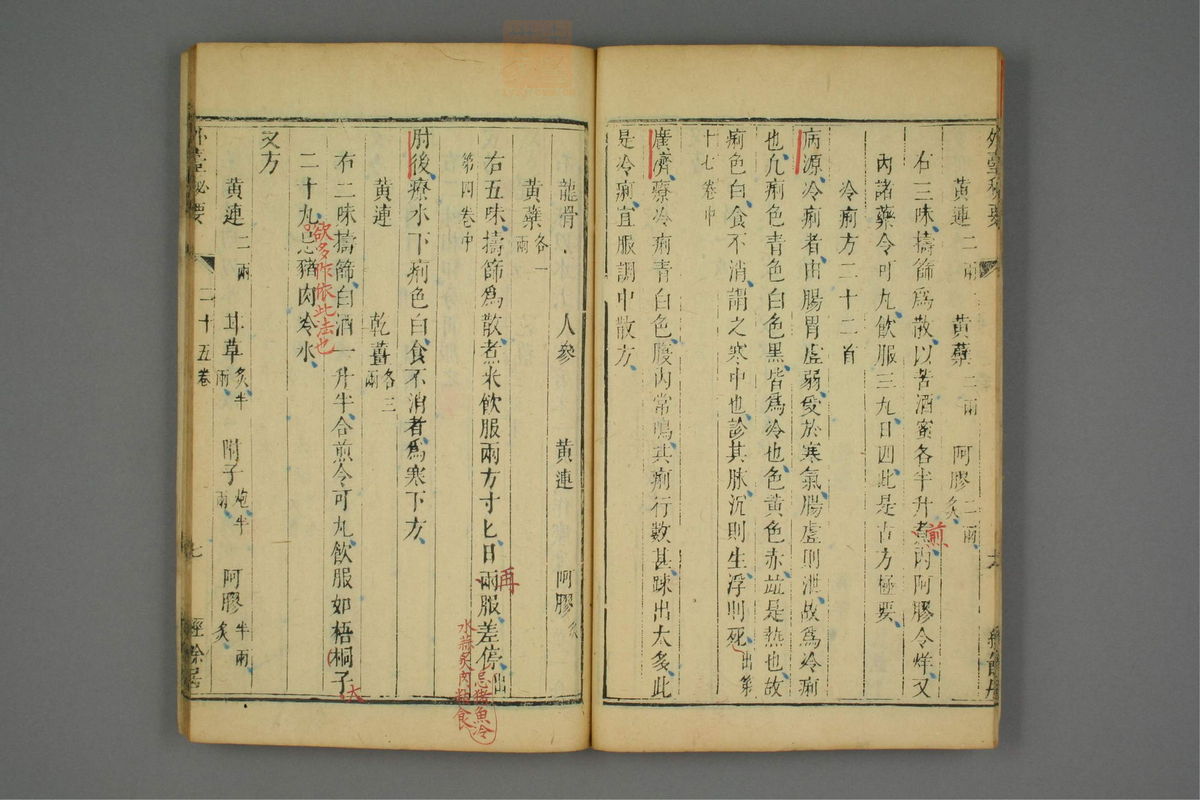 外臺秘要
黃連二兩 黃蘗二兩 阿膠炙二兩
右三味擣篩為散以苦酒蜜各半升煮內阿膠令烊又
煎
內諸藥令可丸飲服三丸日四此是古方極要
冷痢方二十二首
病源冷痢者由腸胃虛弱受於寒氣腸虛則泄故為冷痢
也凡痢色青色白色黑皆為冷也色黃色赤並是熱也故
痢色白食不消謂之寒中也診其脉沉則生浮則死出第
十七卷中
廣濟療冷痢青白色腹內常鳴其痢行數甚踈出太多此
是冷痢宜服調中散方
龍骨 人參 黃連 阿膠炙
黃蘗各一兩
右五味擣篩為散煮米飲服兩方寸匕日兩服差停出
再
第四卷中
忌猪魚冷
水蒜炙肉粘食
肘後療水下痢色白食不消者為寒下方
黃連 乾薑各三兩
右二味擣篩白酒一升半合煎令可丸飲服如梧桐子
大
二十丸忌猪肉冷水
欲多作依此法也
又方
黃連二兩 甘草炙半兩 附子炮半兩 阿膠炙半兩
外臺秘要 二十五卷 七 經餘居